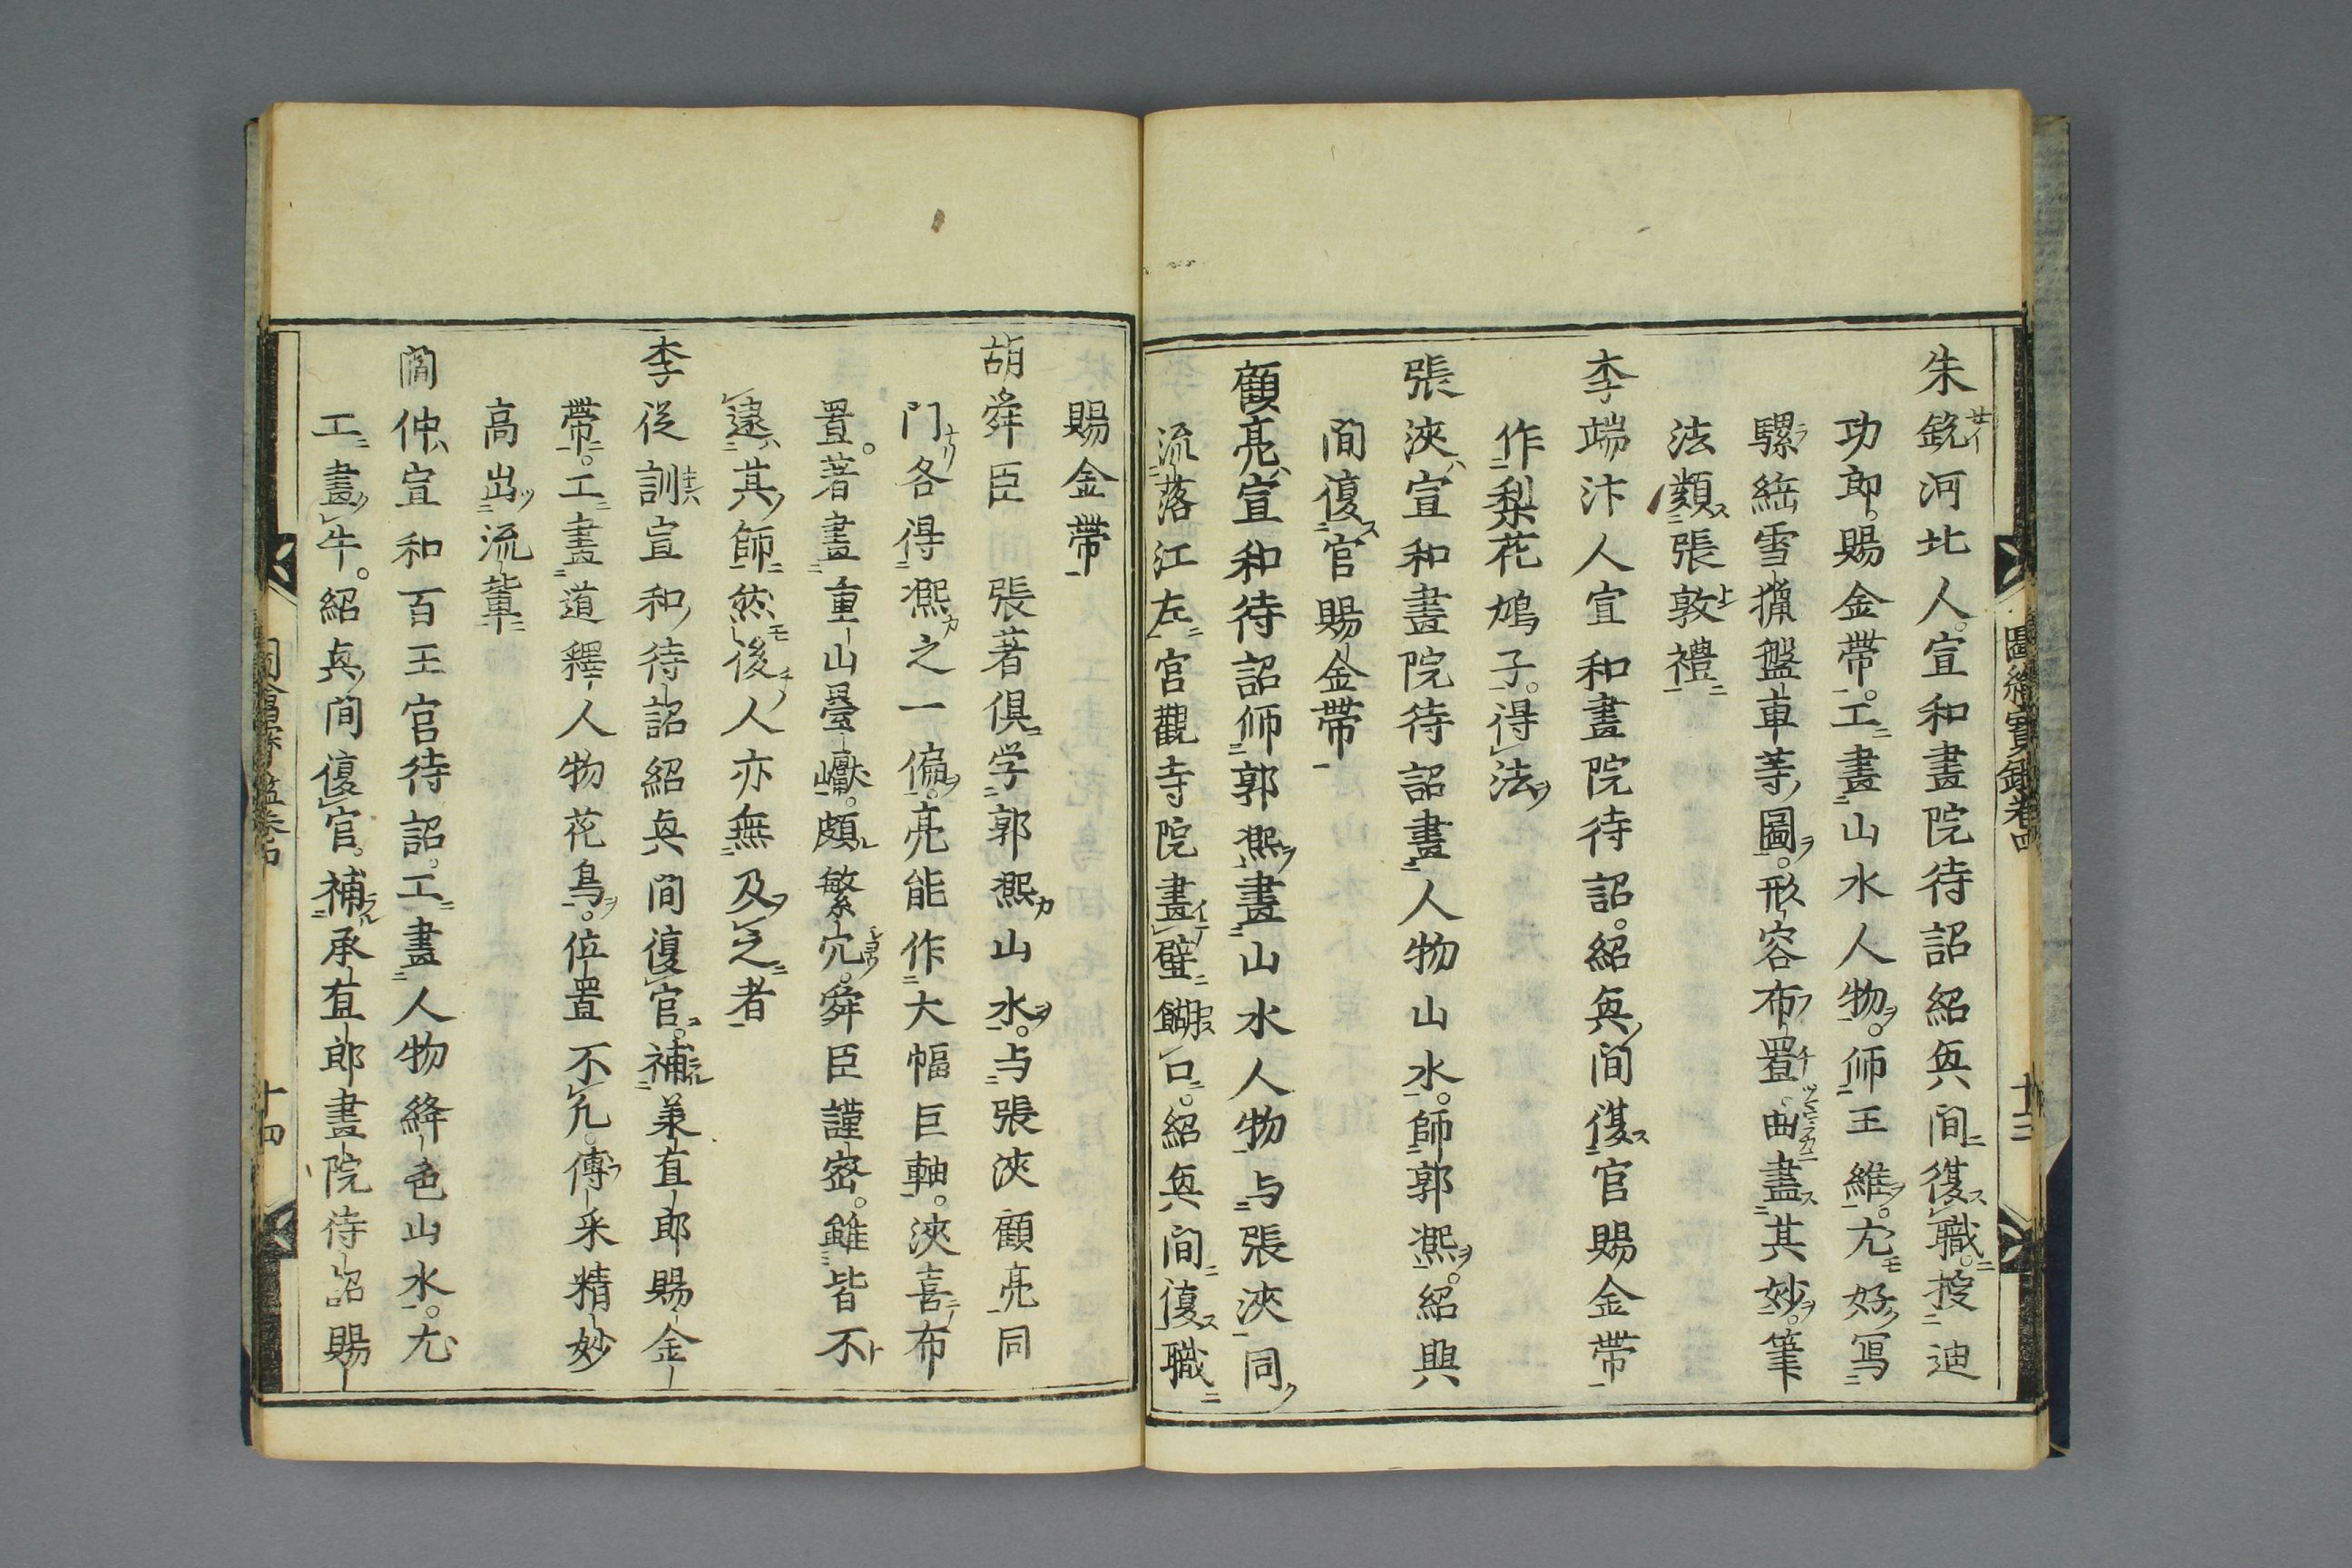 圖繪寶鑑卷四
十三
朱銳河北人。宣和畫院待詔紹興間復職。授迪
功郎。賜金帶。工畫山水人物。师王維。尤好寫
騾綱雪獵盤車等圖。形容布置。曲盡其妙。筆
法類張敦禮
李端汴人宣和畫院待詔。紹興間復官賜金帶
作梨花鳩子。得法
張浹宣和畫院待詔畫人物山水。師郭熙。紹興
間復官賜金帶
顧亮宣和待詔师郭熙畫山水人物与張浹同
流落江左宫觀寺院畫壁餬口。紹興間復職
賜金帶
胡舜臣 張著俱学郭熙山水。与張浹顧亮同
門各得熙之一偏。亮能作大幅巨軸。浹喜布
置。著畫重山疊巘。頗繁冗。舜臣謹密。雖皆不
逮其師然後人亦無及之者
李從訓宣和待詔紹興間復官。補承直郎賜金
帶。工畫道釋人物花鳥。位置不凡。傅采精妙
高出流輩
閻仲宣和百王宫待詔。工畫人物絳色山水。尤
工畫牛。紹興間復官。補承直郎畫院待詔賜
圖繪寶鑑卷四
十四